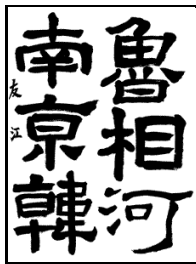 魯相河
南京韓
友江